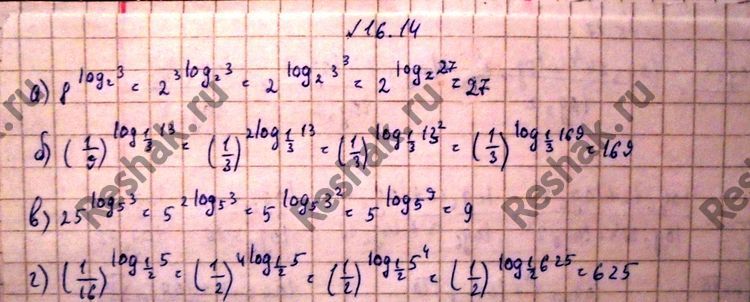 №16.14
а) 8^{log_2 3} = 2^{3 log_2 3} = 2^{log_2 3^3} = 2^{log_2 27} = 27
б) (1/9)^{log_{1/3} 13} = (1/3)^{2 log_{1/3} 13} = (1/3)^{log_{1/3} 13^2} = (1/3)^{log_{1/3} 169} = 169
в) 25^{log_5 3} = 5^{2 log_5 3} = 5^{log_5 3^2} = 5^{log_5 9} = 9
г) (1/16)^{log_{1/2} 5} = (1/2)^{4 log_{1/2} 5} = (1/2)^{log_{1/2} 5^4} = (1/2)^{log_{1/2} 625} = 625
Reshak.ru
Reshak.ru
Reshak.ru
Reshak.ru